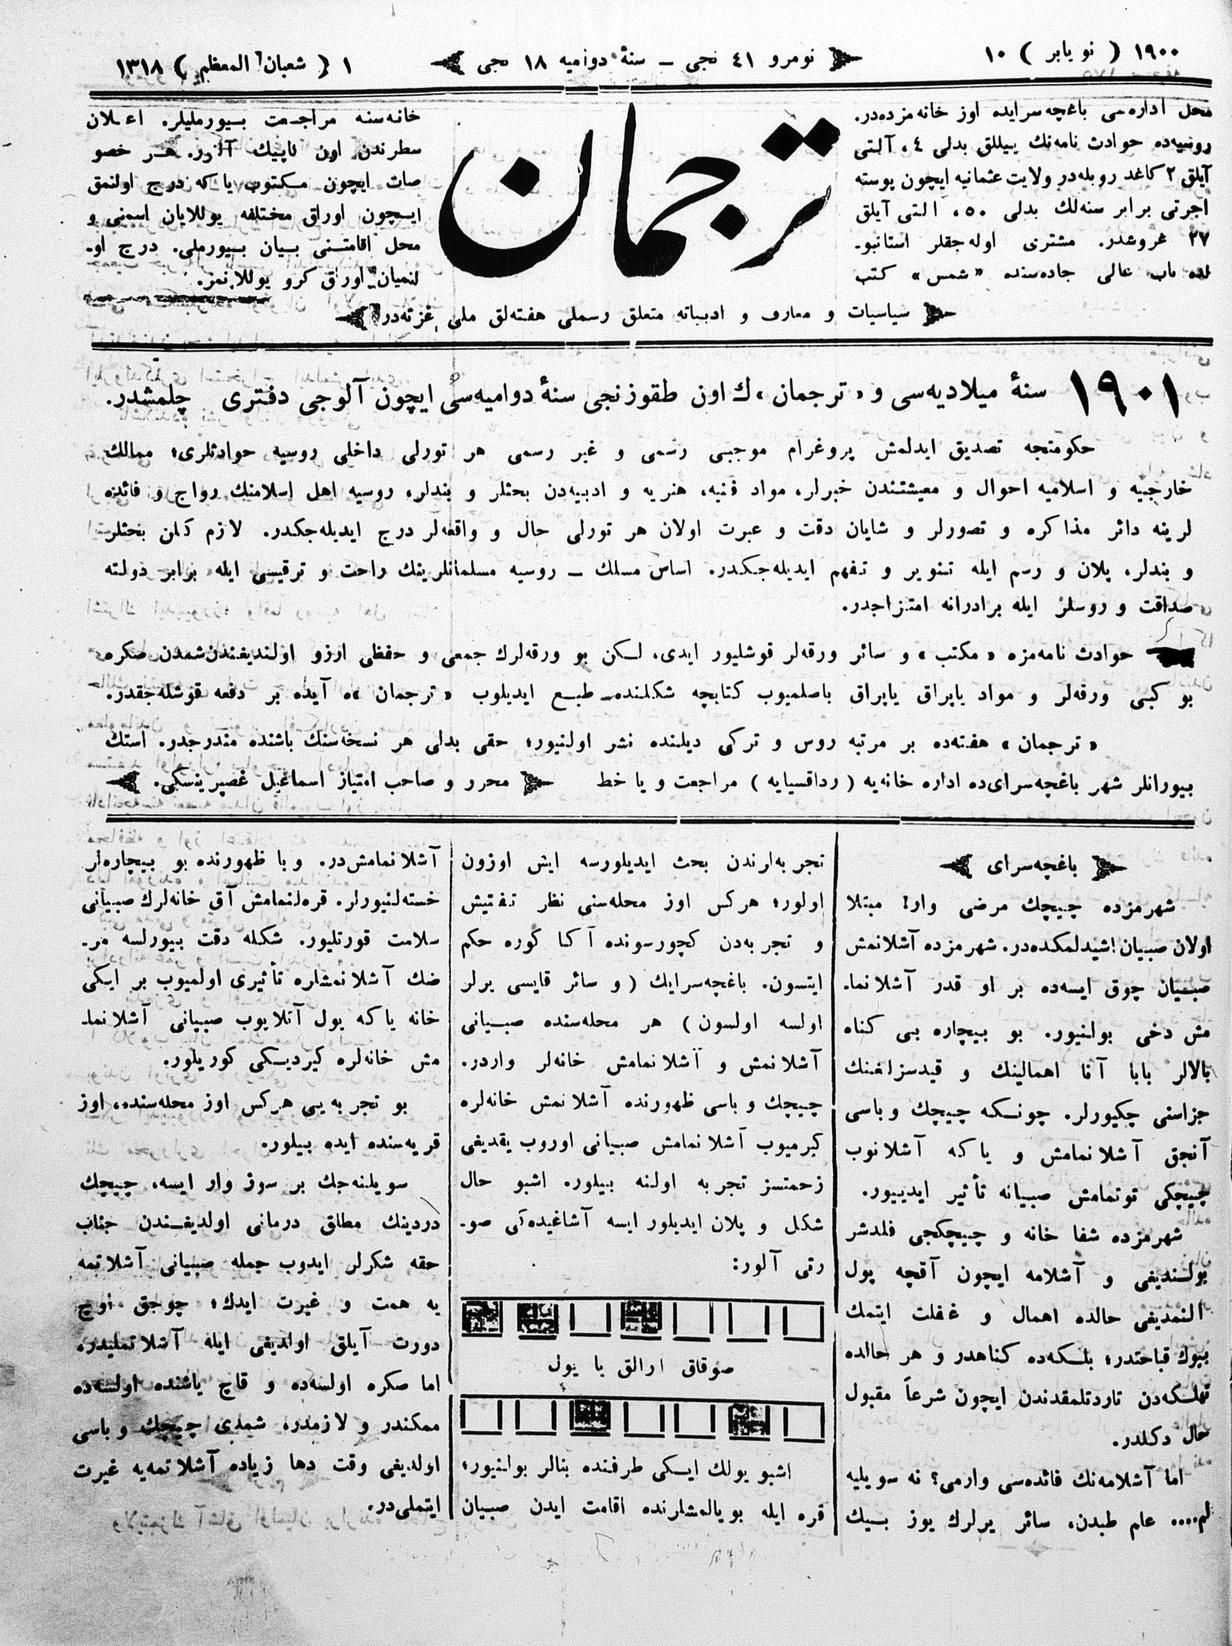 ١٩٠٠ ( نويابر ) ١٠
نومرو ٤١ نجی ــ سنهٔ دواميه ١٨ نجی
١ ( شعبان المعظم ) ١٣١٨
محل اداره‌سی باغچه‌سرايده اوز خانه‌مزده‌در.
روسيه‌ده حوادث نامه‌نك ييللق بدلی ٤، آلتی
آيلق ٢ كاغد روبله‌در ولايت عثمانيه ايچون پوسته
اجرتی برابر سنه‌لك بدلی ٥٠، التی آيلق
٢٧ غروشدر. مشتری اوله‌جقلر استانبو-
لده باب عالی جاده‌سنده «شمس» كتب
خانه‌سنه مراجعت بيورمليلر. اعلان
سطرندن اون كاپيك آلنور. هر خصو
صات ايچون مكتوب ياكه درج اولنمق
ايچون اوراق مختلفه يوللايان اسمنی و
محل اقامتنی بيان بيورملی. درج او-
لنميان اوراق كرو يوللانمز.
ترجمان
سياسيات و معارف و ادبياته متعلق رسملی هفته‌لق ملی غزته‌در
١٩٠١ سنهٔ ميلاديه‌سی و «ترجمان» ك اون طقوزنجی سنهٔ دواميه‌سی ايچون آلوجی دفتری چلمشدر.
حكومتجه تصديق ايدلمش پروغرام موجبی رسمی و غير رسمی هر تورلی داخلی روسيه حوادثلری؛ ممالك
خارجيه و اسلاميه احوال و معيشتندن خبرلر، مواد فنيه، هنريه و ادبيه‌دن بحثلر و بندلر، روسيه اهل اسلامنك رواج و فائده
لرينه دائر مذاكره و تصورلر و شايان دقت و عبرت اولان هر تورلی حال و واقعه‌لر درج ايديله‌جكدر. لازم كلن بحثلر
و بندلر، پلان و رسم ايله تنوير و تفهم ايديله‌جكدر. اساس مسلك ــ روسيه مسلمانلرينك راحت و ترقيسی ايله برابر دولته
صداقت و روسلر ايله برادرانه امتزاجدر.
حوادث نامه‌مزه «مكتب» و سائر ورقه‌لر قوشليور ايدی، لكن بو ورقه‌لرك جمعی و حفظی ارزو اولنديغندن‌شمدن صكره
بو كبی ورقه‌لر و مواد ياپراق ياپراق باصلميوب كتابچه شكلنده طبع ايديلوب «ترجمان» ه آيده بر دفعه قوشله‌جقدر.
«ترجمان» هفته‌ده بر مرتبه روس و تركی ديلنده نشر اولنيور؛ حقی بدلی هر نسخه‌سنك باشنده مندرجدر. استك
بيورانلر شهر باغچه‌سرای‌ده اداره خانه‌يه (رداقسيايه) مراجعت و يا خط
محرر و صاحب امتياز اسماعيل غصپرينسكی.
باغچه‌سرای
شهرمزده چيچك مرضی وار! مبتلا
اولان صبيان اشيدلمكده‌در. شهرمزده آشلانمش
صبيان چوق ايسه‌ده بر او قدر آشلانما-
مش دخی بولنيور. بو بيچاره بی كناه
بالالر بابا آنا اهمالينك و قيدسزلغنك
جزاسنی چكيورلر. چونكه چيچك وباسی
آنجق آشلانمامش و ياكه آشلانوب
چيچكی توتمامش صبيانه تأثير ايدييور.
شهرمزده شفا خانه و چيچكجی فلدشر
بولنديغی و آشلامه ايچون آقچه پول
النمديغی حالده اهمال و غفلت ايتمك
بيوك قباحتدر؛ بلكه‌ده كناهدر و هر حالده
تهلكه‌دن قاردتلمقدندن ايچون شرعاً مقبول
حال دكلدر.
اما آشلامه‌نك فائده‌سی وارمی؟ نه سويليه
لم.... عام طبدن، سائر يرلرك يوز بيك
تجربه‌لرندن بحث ايديلورسه ايش اوزون
اولور؛ هركس اوز محله‌سنی نظر تفتيش
و تجربه‌دن كچورسونده آكا كوره حكم
ايتسون. باغچه‌سرايك (و سائر قايسی يرلر
اولسه اولسون) هر محله‌سنده صبيانی
آشلانمش و آشلانمامش خانه‌لر واردر.
چيچك وباسی ظهورنده آشلانمش خانه‌لره
كيرميوب آشلانمامش صبيانی اوروب يقديغی
زحمتسز تجربه اولنه بيلور. اشبو حال
شكل و پلان ايديلور ايسه آشاغيده‌كی صو-
رتی آلور:
صوقاق ارالق يا يول
اشبو يولك ايكی طرفنده بنالر بولنيور؛
قره ايله بويالمشلرنده اقامت ايدن صبيان
آشلانمامش‌در. وبا ظهورنده بو بيچاره‌لر
خسته‌لنيورلر. قره‌لنمامش آق خانه‌لرك صبيانی
سلامت قورتليور. شكله دقت بيورلسه مر-
ضك آشلانمشلره تأثيری اولميوب بر ايكی
خانه ياكه يول آتلايوب صبيانی آشلانما-
مش خانه‌لره كيرديكی كوريلور.
بو تجربه‌يی هركس اوز محله‌سنده، اوز
قريه‌سنده ايده بيلور.
سويلنه‌جك بر سوز وار ايسه، چيچك
دردينك مطلق درمانی اولديغندن جناب
حقه شكرلر ايدوب جمله صبيانی آشلاتمه
يه همت و غيرت ايدك؛ چوجق اوچ
دورت آيلق اولديغی ايله آشلاتمليدر،
اما صكره اولسه‌ده و قاچ ياشنده اولسه‌ده
ممكندر و لازمدر، شمدی چيچك وباسی
اولديغی وقت دها زياده آشلاتمه‌يه غيرت
ايتملی‌در.